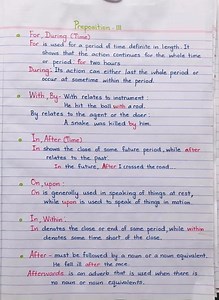 Preposition - III
For, During (Time)
For is used for a period of time definite in length. It
shows that the action continues for the whole time
or period. for two hours
During: Its action can either last the whole period or
occur at sometime within the period.
With, By - With relates to instrument:
He hit the ball with a rod.
By relates to the agent or the doer.
A snake was killed by him.
In, After (Time)
In shows the close of some future period, while after
relates to the past.
In the future, After I crossed the road
On, upon:
On is generally used in speaking of things at rest,
while upon is used to speak of things in motion.
In, Within
In denotes the close or end of some period, while within
denotes some time short of the close.
After - must be followed by a noun or a noun equivalent.
He fell ill after the race.
Afterwards is an adverb that is used when there is
no noun or noun equivalents.